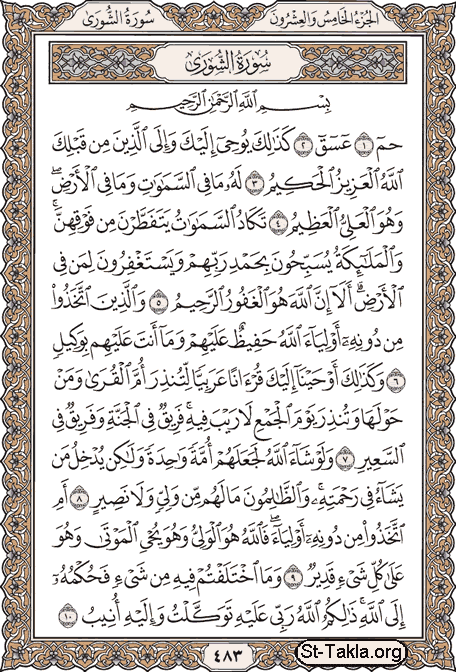 سُورَةُ الشُّورَىٰ
الجُزْءُ الخَامِسُ وَالعِشْرُونَ
سُورَةُ الشُّورَىٰ
بِسْمِ اللَّهِ الرَّحْمَٰنِ الرَّحِيمِ
حمٓ ١ عٓسٓقٓ ٢ كَذَٰلِكَ يُوحِىٓ إِلَيْكَ وَإِلَى الَّذِينَ مِن قَبْلِكَ
اللَّهُ الْعَزِيزُ الْحَكِيمُ ٣ لَهُۥ مَا فِى السَّمَٰوَٰتِ وَمَا فِى الْأَرْضِ ۖ
وَهُوَ الْعَلِىُّ الْعَظِيمُ ٤ تَكَادُ السَّمَٰوَٰتُ يَتَفَطَّرْنَ مِن فَوْقِهِنَّ ۚ
وَالْمَلَٰٓئِكَةُ يُسَبِّحُونَ بِحَمْدِ رَبِّهِمْ وَيَسْتَغْفِرُونَ لِمَن فِى
الْأَرْضِ ۗ أَلَآ إِنَّ اللَّهَ هُوَ الْغَفُورُ الرَّحِيمُ ٥ وَالَّذِينَ اتَّخَذُوا۟
مِن دُونِهِۦٓ أَوْلِيَآءَ اللَّهُ حَفِيظٌ عَلَيْهِمْ وَمَآ أَنتَ عَلَيْهِم بِوَكِيلٍ
٦ وَكَذَٰلِكَ أَوْحَيْنَآ إِلَيْكَ قُرْءَانًا عَرَبِيًّا لِّتُنذِرَ أُمَّ الْقُرَىٰ وَمَنْ
حَوْلَهَا وَتُنذِرَ يَوْمَ الْجَمْعِ لَا رَيْبَ فِيهِ ۚ فَرِيقٌ فِى الْجَنَّةِ وَفَرِيقٌ فِى
السَّعِيرِ ٧ وَلَوْ شَآءَ اللَّهُ لَجَعَلَهُمْ أُمَّةً وَٰحِدَةً وَلَٰكِن يُدْخِلُ مَن
يَشَآءُ فِى رَحْمَتِهِۦ ۚ وَالظَّٰلِمُونَ مَا لَهُم مِّن وَلِىٍّ وَلَا نَصِيرٍ ٨ أَمِ
اتَّخَذُوا۟ مِن دُونِهِۦٓ أَوْلِيَآءَ ۖ فَاللَّهُ هُوَ الْوَلِىُّ وَهُوَ يُحْىِ الْمَوْتَىٰ وَهُوَ
عَلَىٰ كُلِّ شَىْءٍ قَدِيرٌ ٩ وَمَا اخْتَلَفْتُمْ فِيهِ مِن شَىْءٍ فَحُكْمُهُۥٓ
إِلَى اللَّهِ ۚ ذَٰلِكُمُ اللَّهُ رَبِّى عَلَيْهِ تَوَكَّلْتُ وَإِلَيْهِ أُنِيبُ ١٠
٤٨٣
St-Takla.org